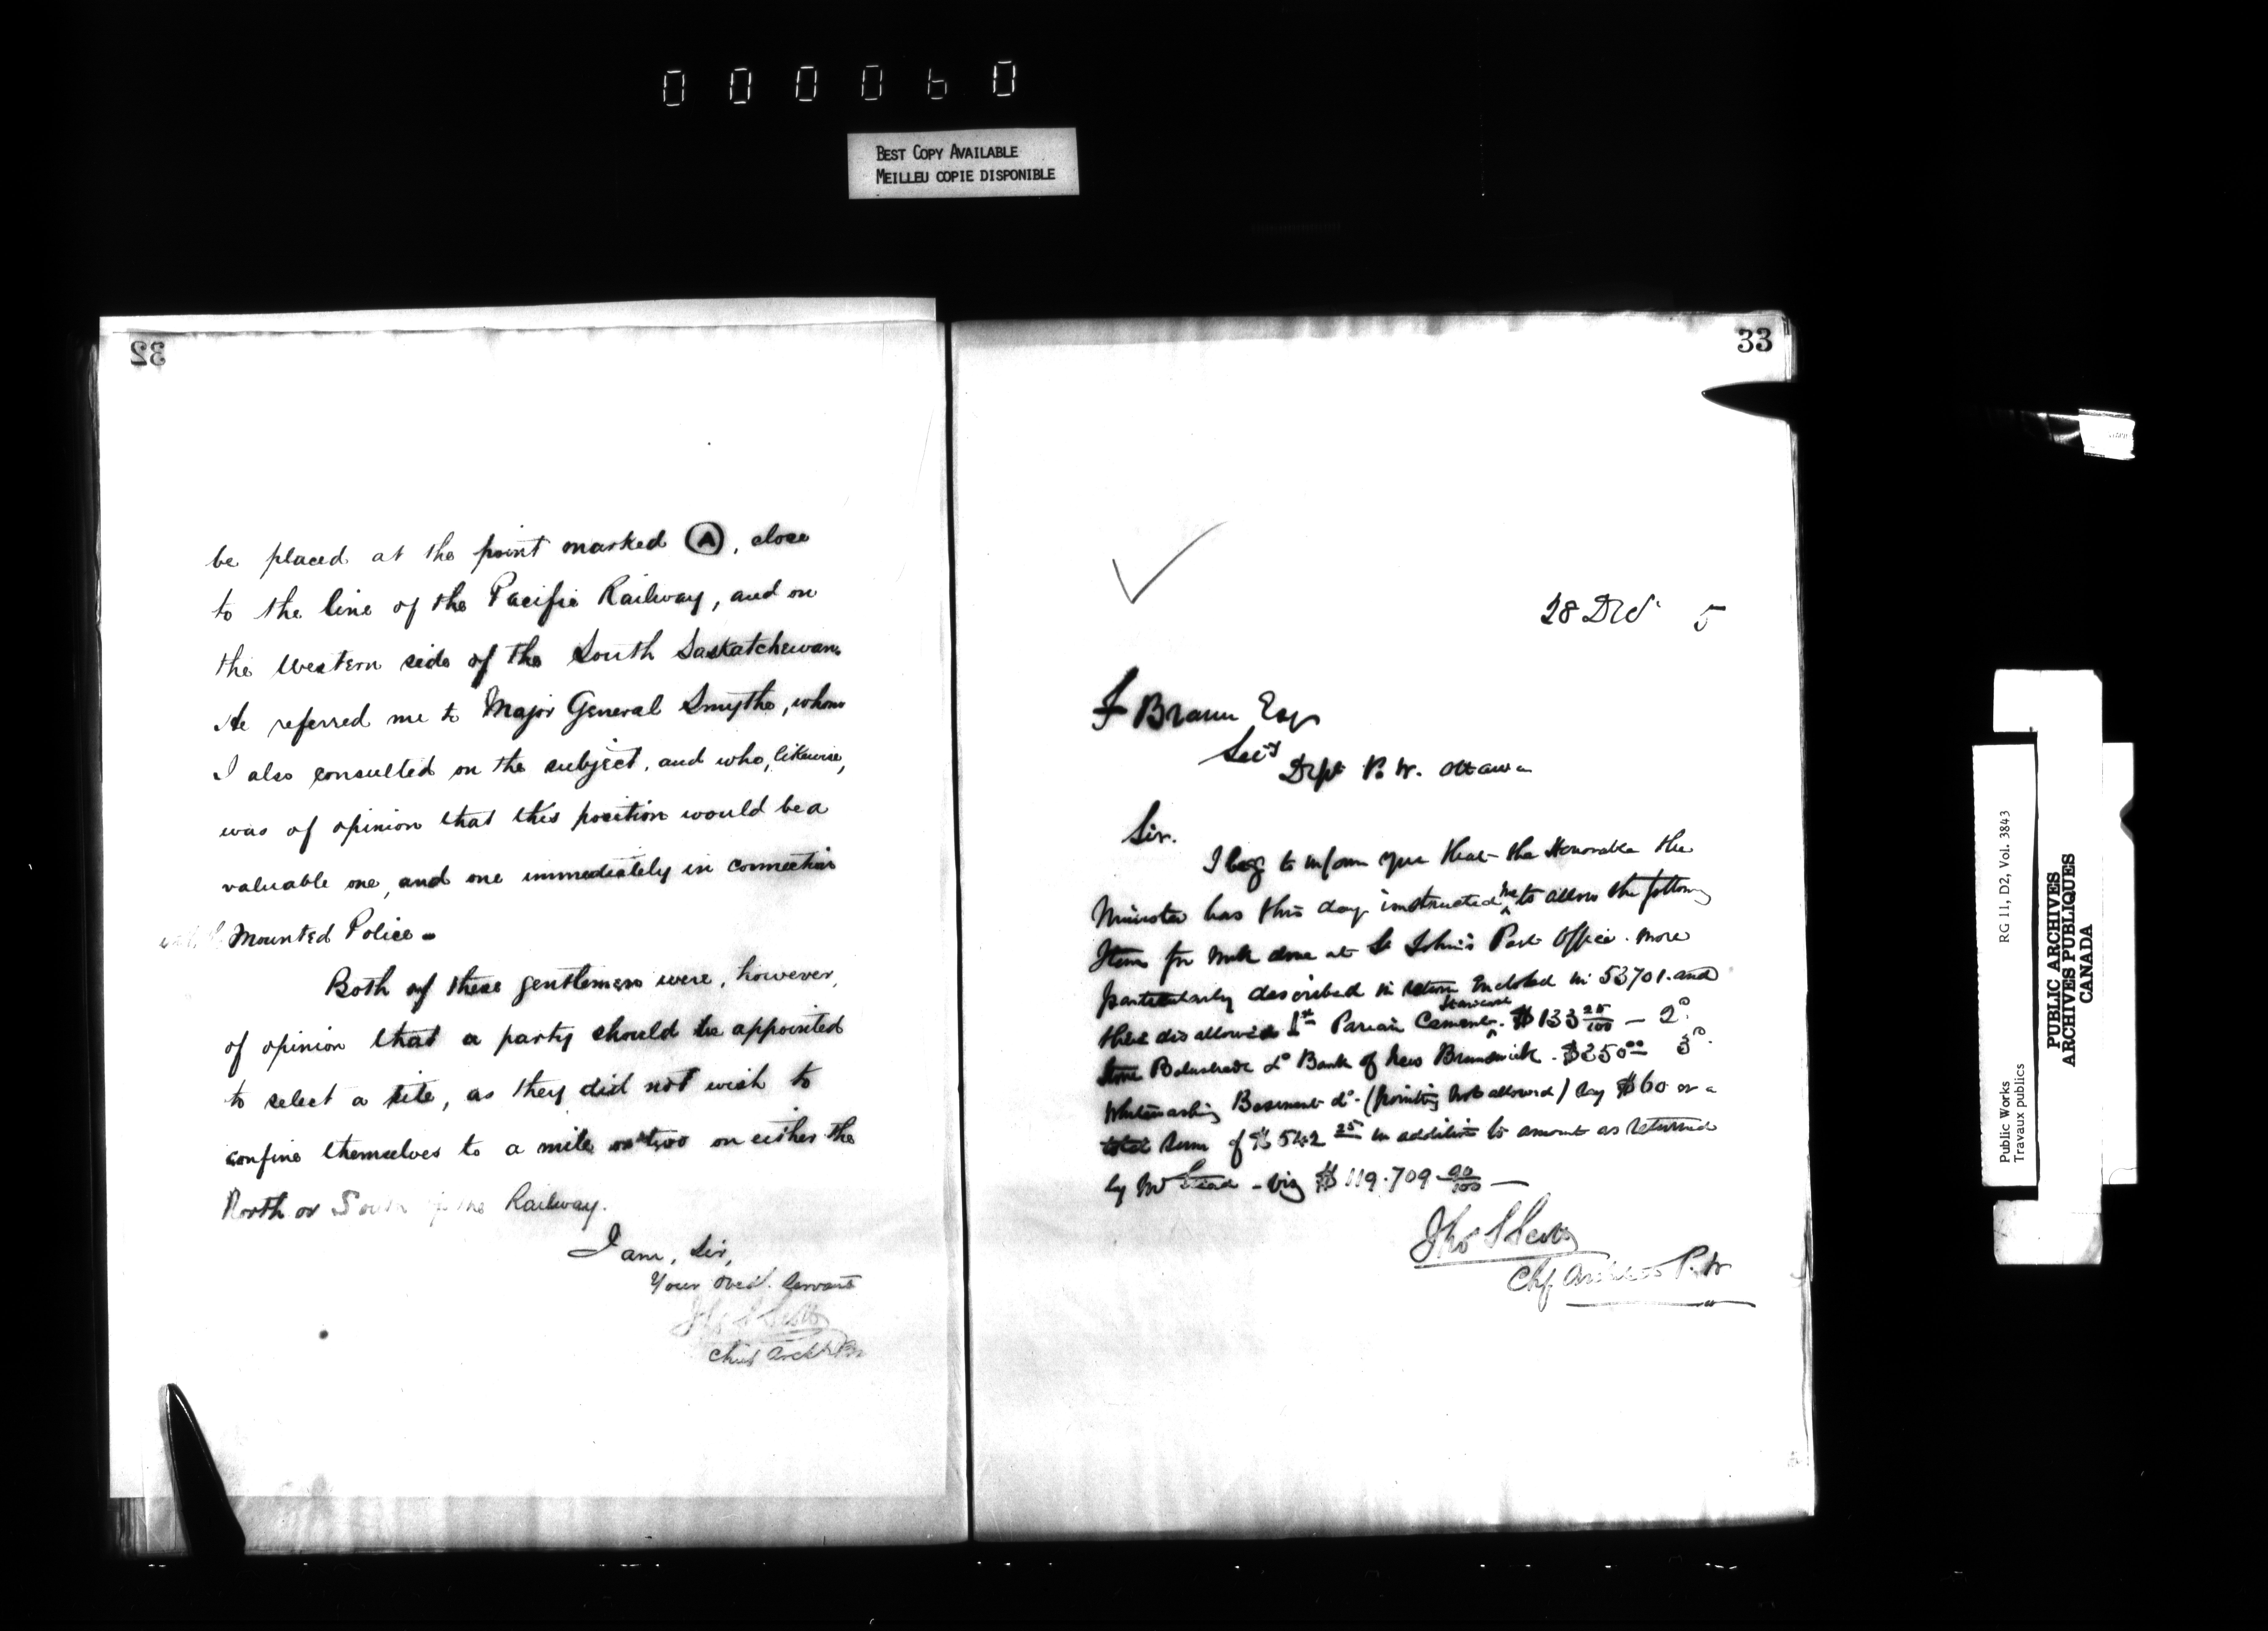 000060
BEST COPY AVAILABLE
MEILLEU COPIE DISPONIBLE
32
be placed at the point marked (A), close
to the line of the Pacific Railway, and on
the Western side of the South Saskatchewan.
He referred me to Major General Smythe, whom
I also consulted on the subject, and who, likewise,
was of opinion that this position would be a
valuable one, and one immediately in connection
Mounted Police -
Both of these gentlemen were, however,
of opinion that a party should be appointed
to select a site, as they did not wish to
confine themselves to a mile or two on either the
North or South of the Railway.
I am, Sir,
Your Obed. Servant
Thos S Scott
Chief Archt P.W
33
28 Dec 5
F Braun Esq
Secy
Dept P. W. Ottawa
Sir.
I beg to inform you that the Honorable the
Minister has this day instructed me to allow the following
Items for work done at St John's Post Office. more
particularly described in return inclosed in 53701. and
there disallowed 1st Parian Cement Staircase. $133 25/100 — 2o.
Stone Balustrade do Bank of New Brunswick. $350 00 3o.
Whitewashing Basement do. (pointing not allowed) say $60 or a
total sum of $542 25 in addition to amount as returned
by Mr Stead - viz $119.709 90/100 —
Thos S Scott
Chf Architect P.W
Public Works
Travaux publics
RG 11, D2, Vol. 3843
PUBLIC ARCHIVES
ARCHIVES PUBLIQUES
CANADA